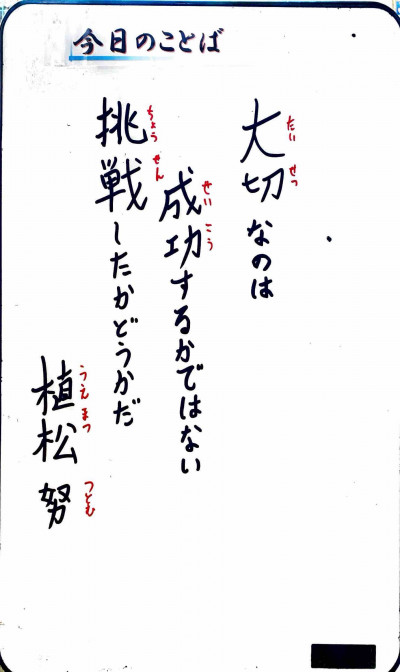 今日のことば
大切なのは
たいせつ
成功するかではない
せいこう
挑戦したかどうかだ
ちょうせん
植松 努
うえまつ つとむ